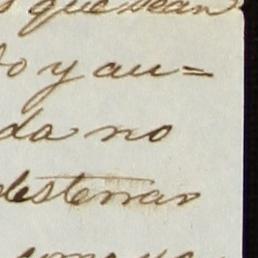 que sean
o y au=
da no
desterrar